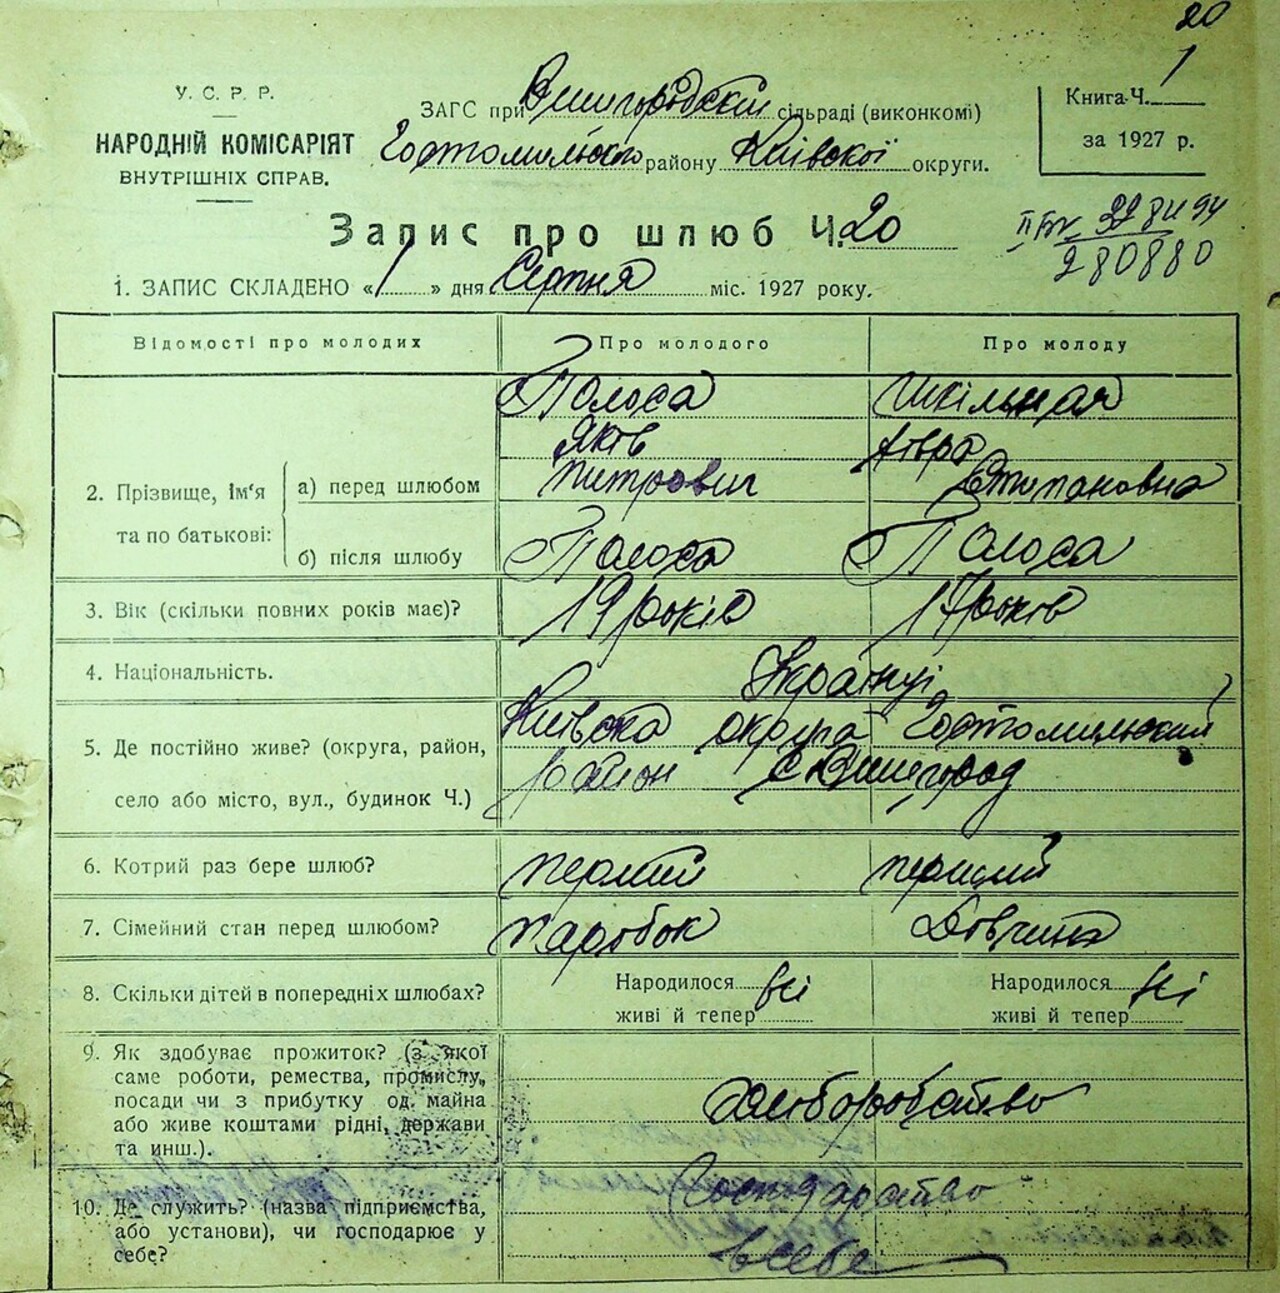 20
1
У. С. Р. Р.
НАРОДНІЙ КОМІСАРІЯТ
ВНУТРІШНІХ СПРАВ.
ЗАГС при Вишгородскій сільраді (виконкомі)
Гостомильского району Київскої округи.
Книга Ч.
за 1927 р.
Запис про шлюб Ч. 20
280880
1. ЗАПИС СКЛАДЕНО «1» дня Серпня міс. 1927 року.
Відомості про молодих Про молодого Про молоду
2. Прізвище, ім'я та по батькові:
а) перед шлюбом
Полоса Шкільная
Яків
Петрович Степановна
б) після шлюбу Полоса Полоса
3. Вік (скільки повних років має)? 19 років 17 років
4. Національність. Українці
5. Де постійно живе? (округа, район,
село або місто, вул., будинок Ч.)
Київска округа Гостомильский
район с Вишгород
6. Котрий раз бере шлюб? перший перший
7. Сімейний стан перед шлюбом? парубок Дівчина
8. Скільки дітей в попередніх шлюбах? Народилося Народилося
живі й тепер живі й тепер
9. Як здобуває прожиток? (з якої
саме роботи, ремества, промислу,
посади чи з прибутку од майна
або живе коштами рідні, держави
та инш.).
Хлиборобство
10. Де служить? (назва підприємства,
або установи), чи господарює у
себе?
Господарство
всебе